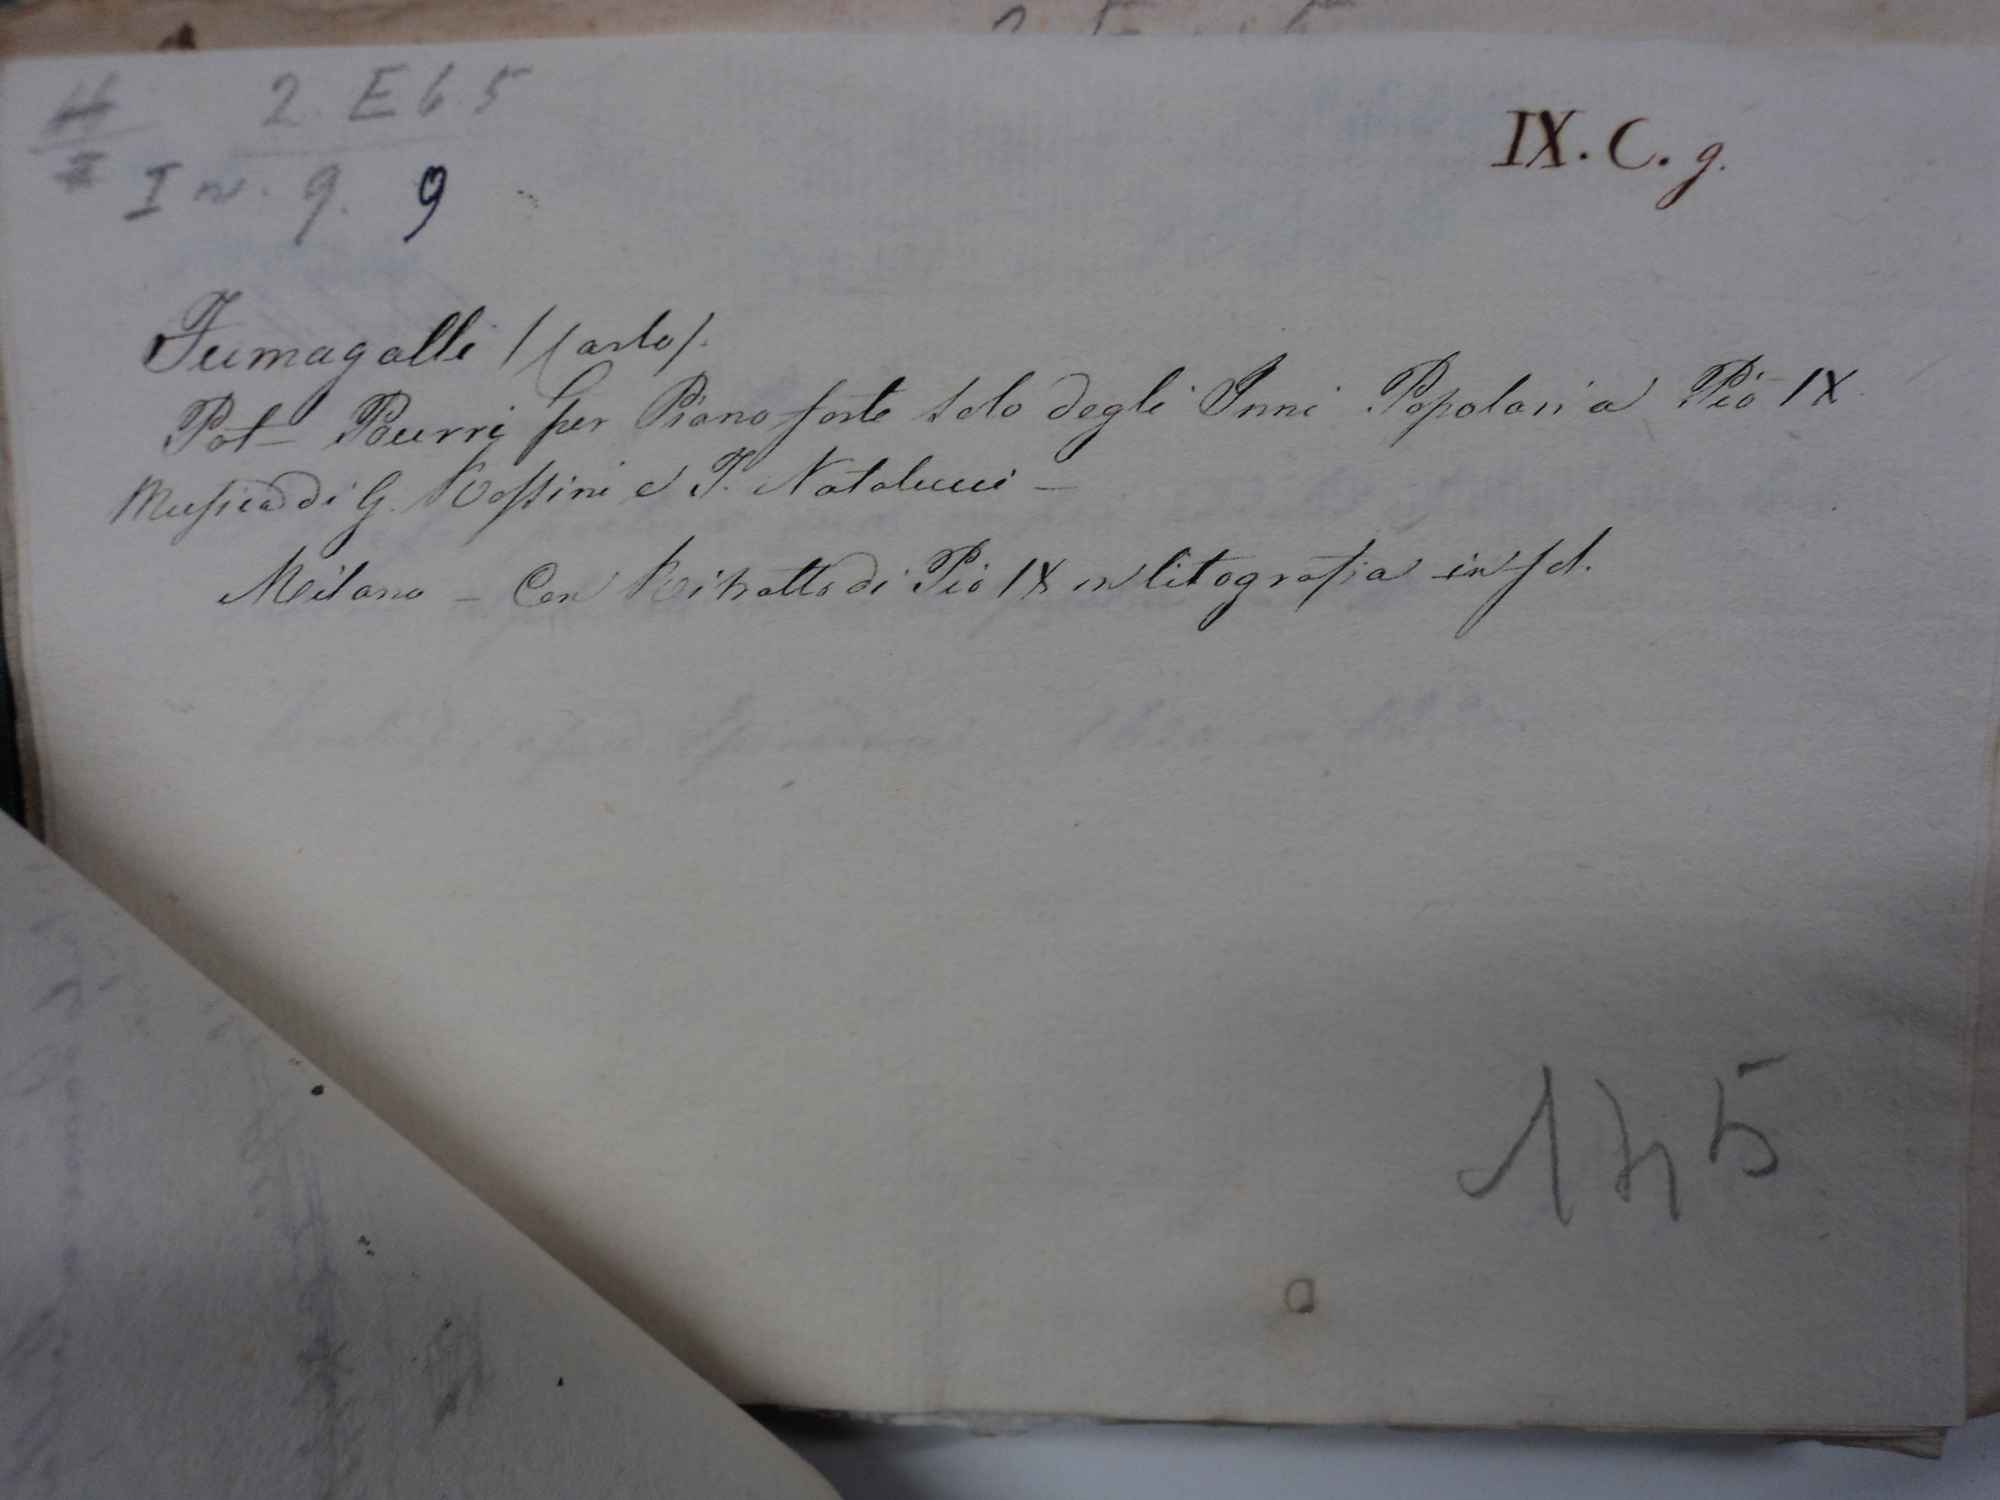 2. E 6. 5
IX. C. g.
I n. 9. 9
Fumagalli /Carlo/.
Pot- Pourri per Piano forte solo degli Inni Popolari a Pio IX
Musica di G. Rossini e T. Natalucci -
Milano - Con Ritratto di Pio IX in litografia in fol.
145